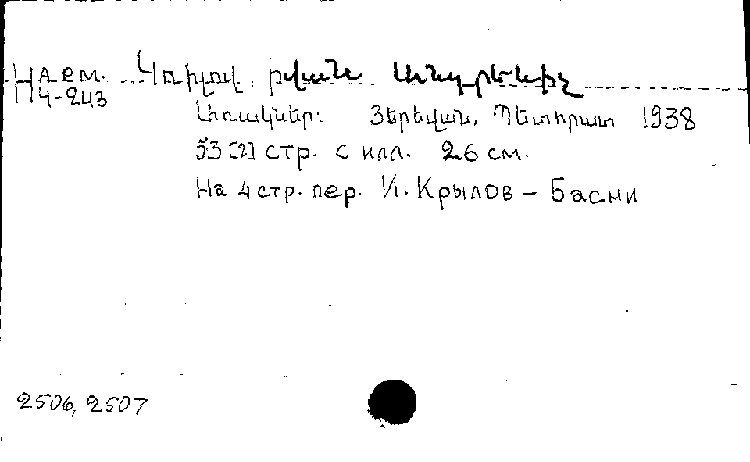 НАРМ. Կռիլով Իվան Անդրեեվիչ
4-243
Առակներ: Յերեվան, Պետհրատ 1938
53 [2] стр. с илл. 26 см.
На 4 стр. пер. И. Крылов – Басни
2506, 2507